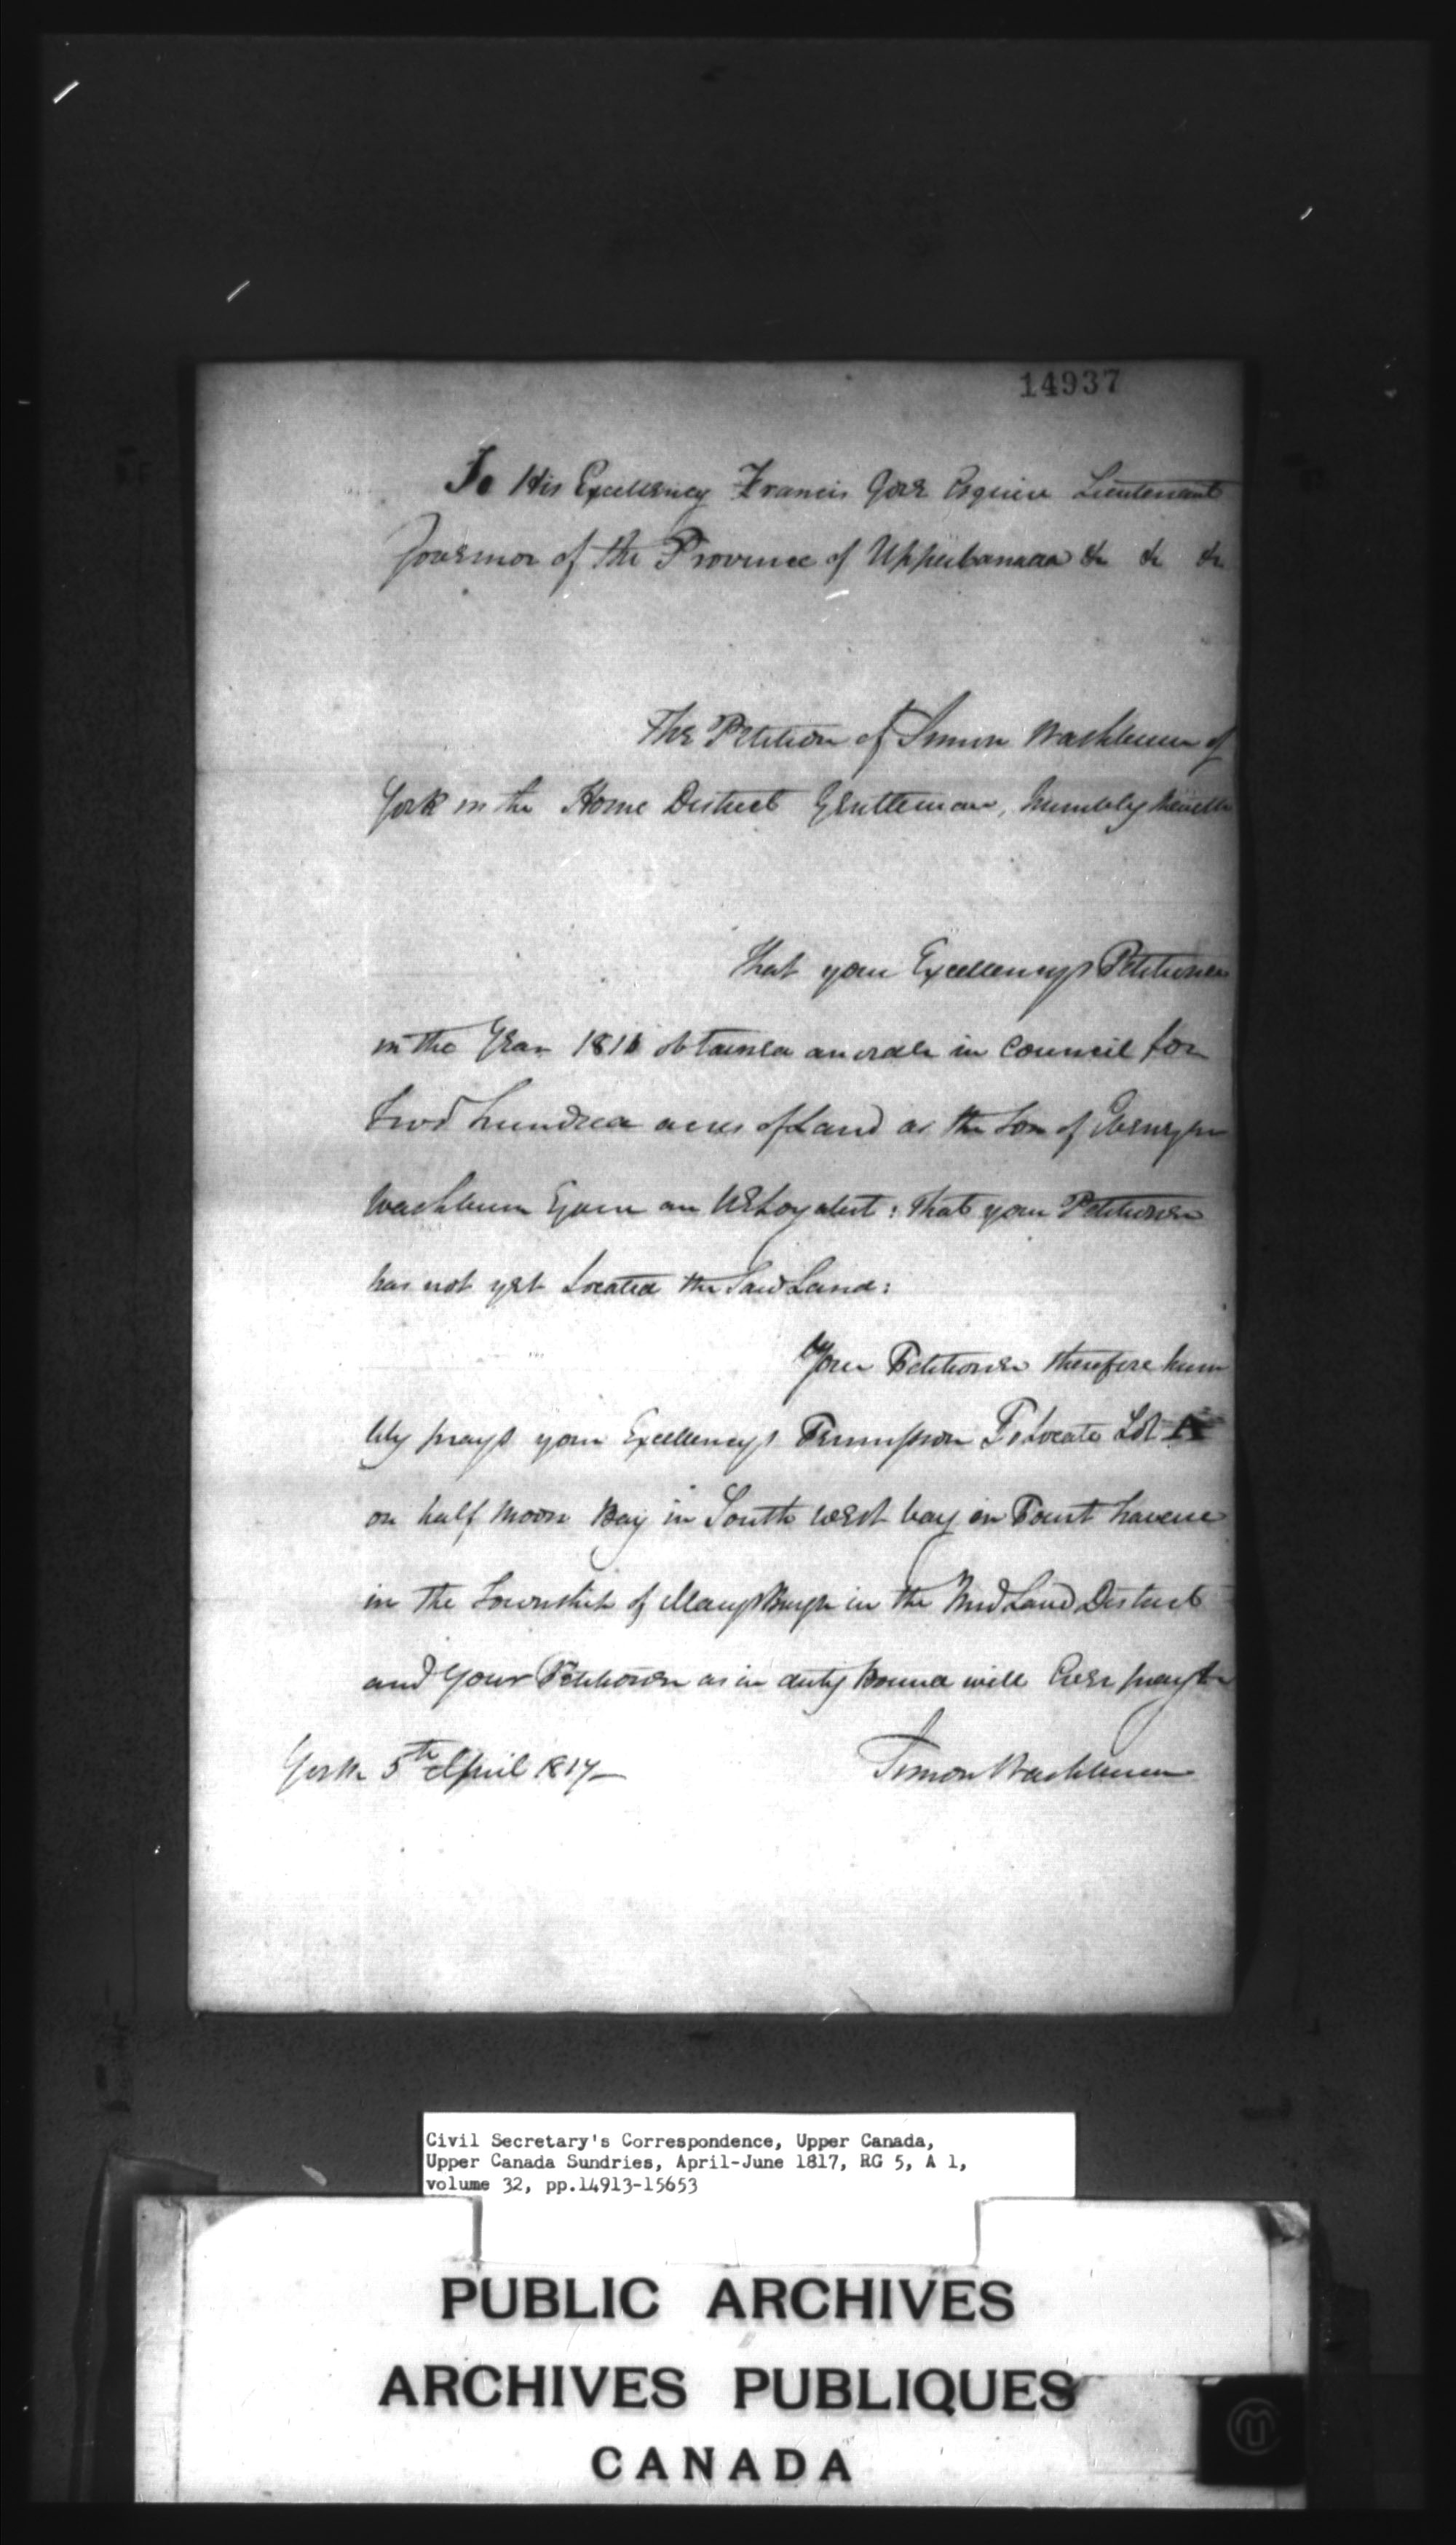 14937
To His Excellency Francis Gore Esquire Lieutenant
Governor of the Province of Upper Canada &c &c &c
The Petition of Simon Washburn of
York in the Home District Gentleman, humbly sheweth
That your Excellencys Petitioner
in the Year 1816 obtained an order in Council for
two hundred acres of Land as the Son of Ebenezer
Washburn Esquire an UE Loyalist: that your Petitioner
has not yet Located the Said Land:
Your Petitioner therefore hum
bly prays your Excellencys Permission To Locate Lot A
on half Moon Bay in South west bay on Point
in the Township of Marysburgh in the MidLand District
and Your Petitioner as in duty Bound will Ever pray &c
York 5th April 1817 Simon Washburn
Civil Secretary's Correspondence, Upper Canada,
Upper Canada Sundries, April-June 1817, RG 5, A 1,
volume 32, pp.14913-15653
PUBLIC ARCHIVES
ARCHIVES PUBLIQUES
CANADA